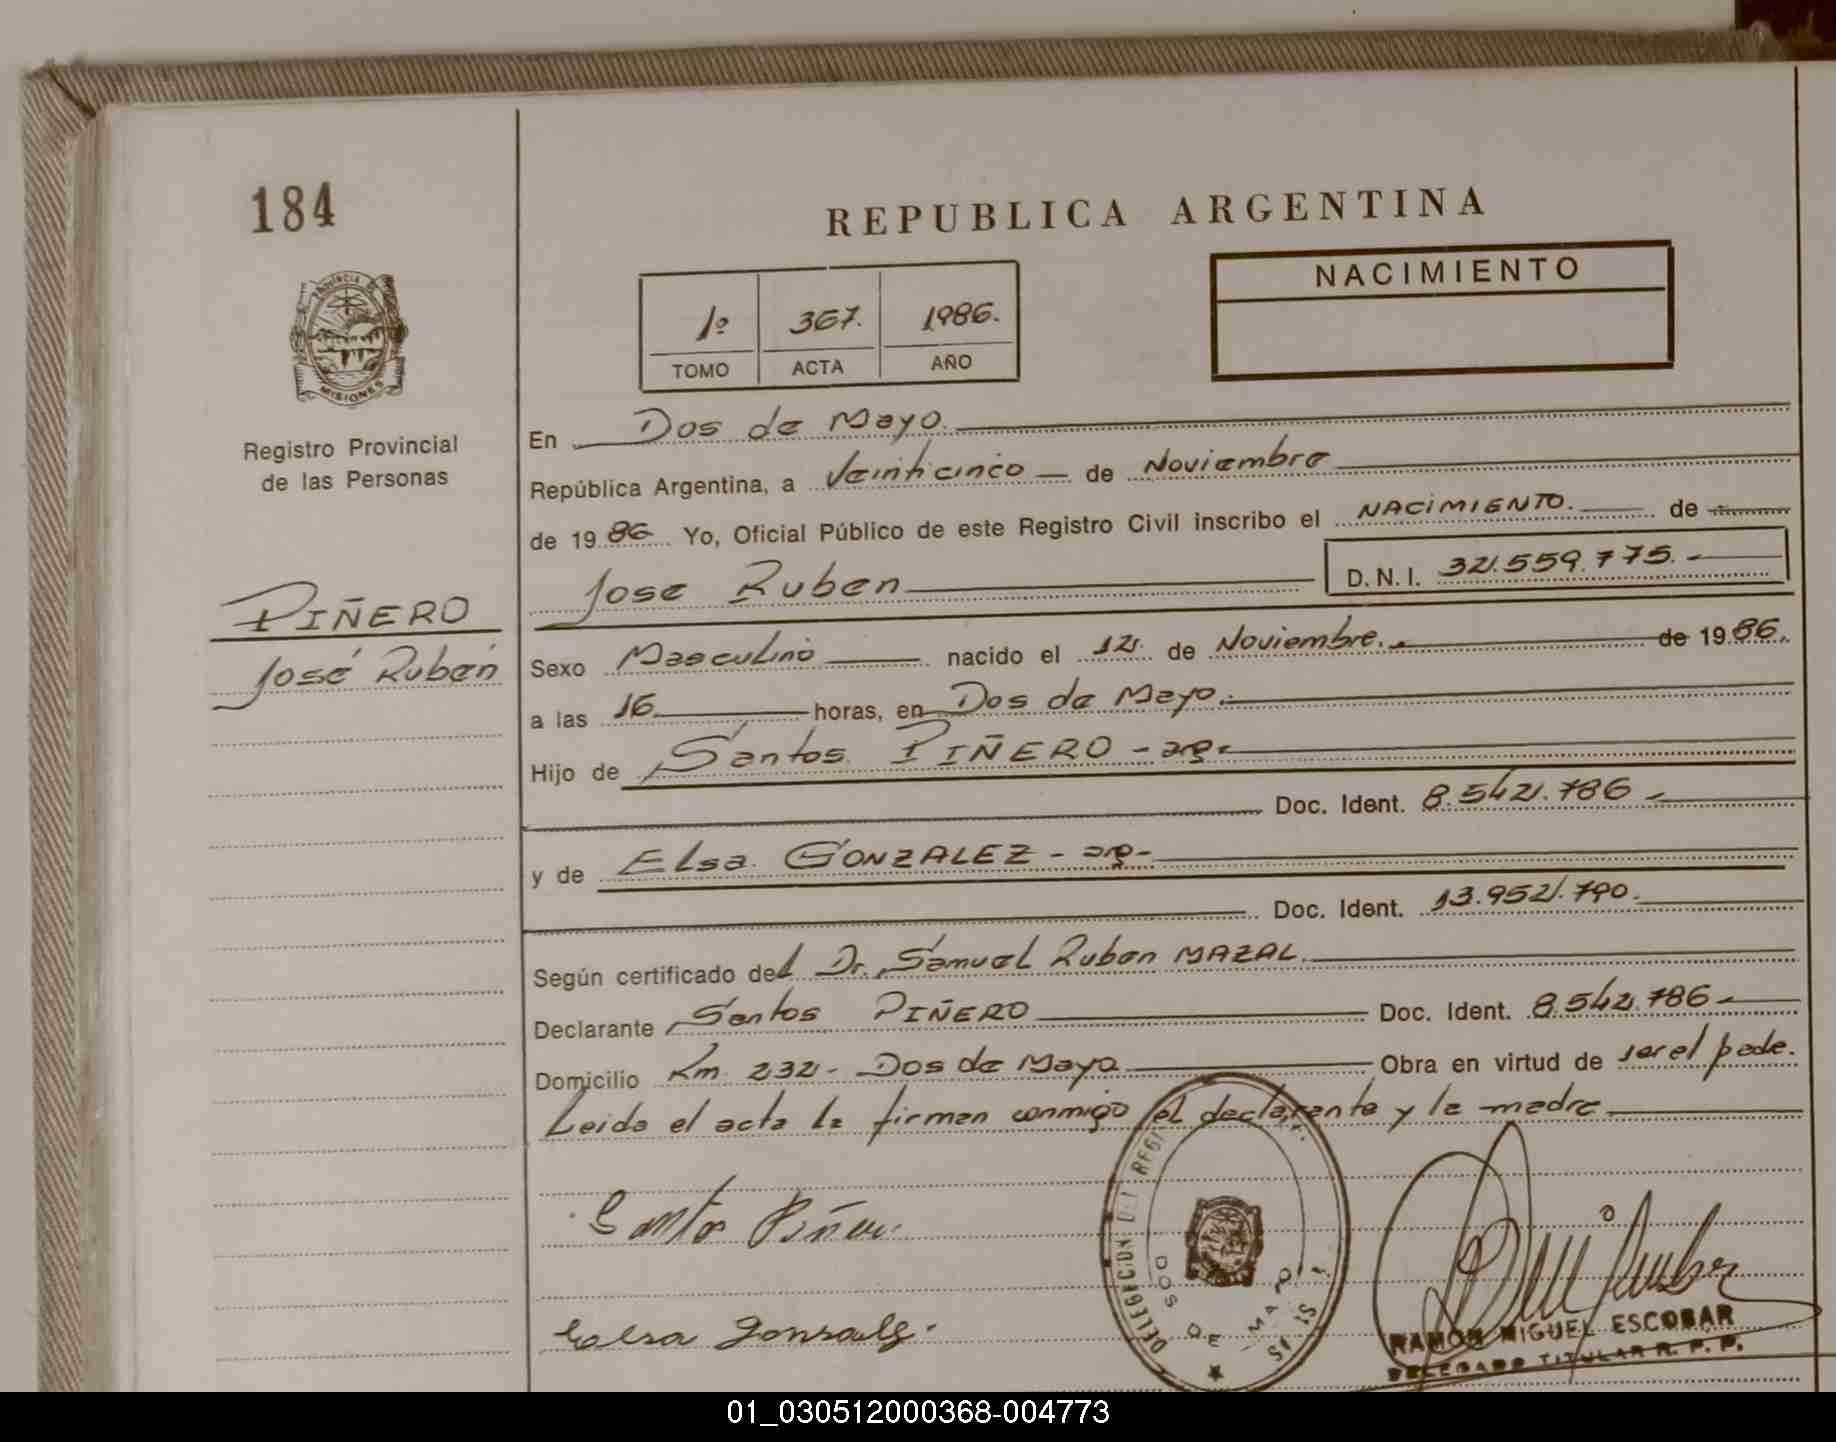 184
REPUBLICA ARGENTINA
NACIMIENTO
1º 367. 1986.
TOMO ACTA AÑO
PROVINCIA DE
MISIONES
Registro Provincial
de las Personas
PIÑERO
José Rubén
En Dos de Mayo.
República Argentina, a Veinticinco de Noviembre
de 1986 Yo, Oficial Público de este Registro Civil inscribo el NACIMIENTO. de
Jose Ruben D.N.I. 32.559.775.-
Sexo Masculino nacido el 12 de Noviembre. de 1986.
a las 16 horas, en Dos de Mayo.
Hijo de Santos PIÑERO - arg.
Doc. Ident. 8.542.786
y de Elsa GONZALEZ - arg-
Doc. Ident. 13.952.790.
Según certificado del Dr. Samuel Ruben MAZAL.
Declarante Santos PIÑERO Doc. Ident. 8.542.786
Domicilio Km 232 - Dos de Mayo Obra en virtud de ser el padre.
Leida el acta la firman conmigo el declarante y la madre
Santos Piñero
Elsa Gonsalez.
DELEGACION DEL REGI
DOS DE MAYO
RAMON MIGUEL ESCOBAR
DELEGADO TITULAR R. P. P.
01_030512000368-004773